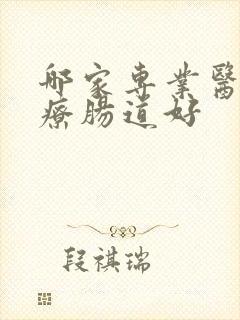 邮家専業醫
療腸道好
段祺瑞